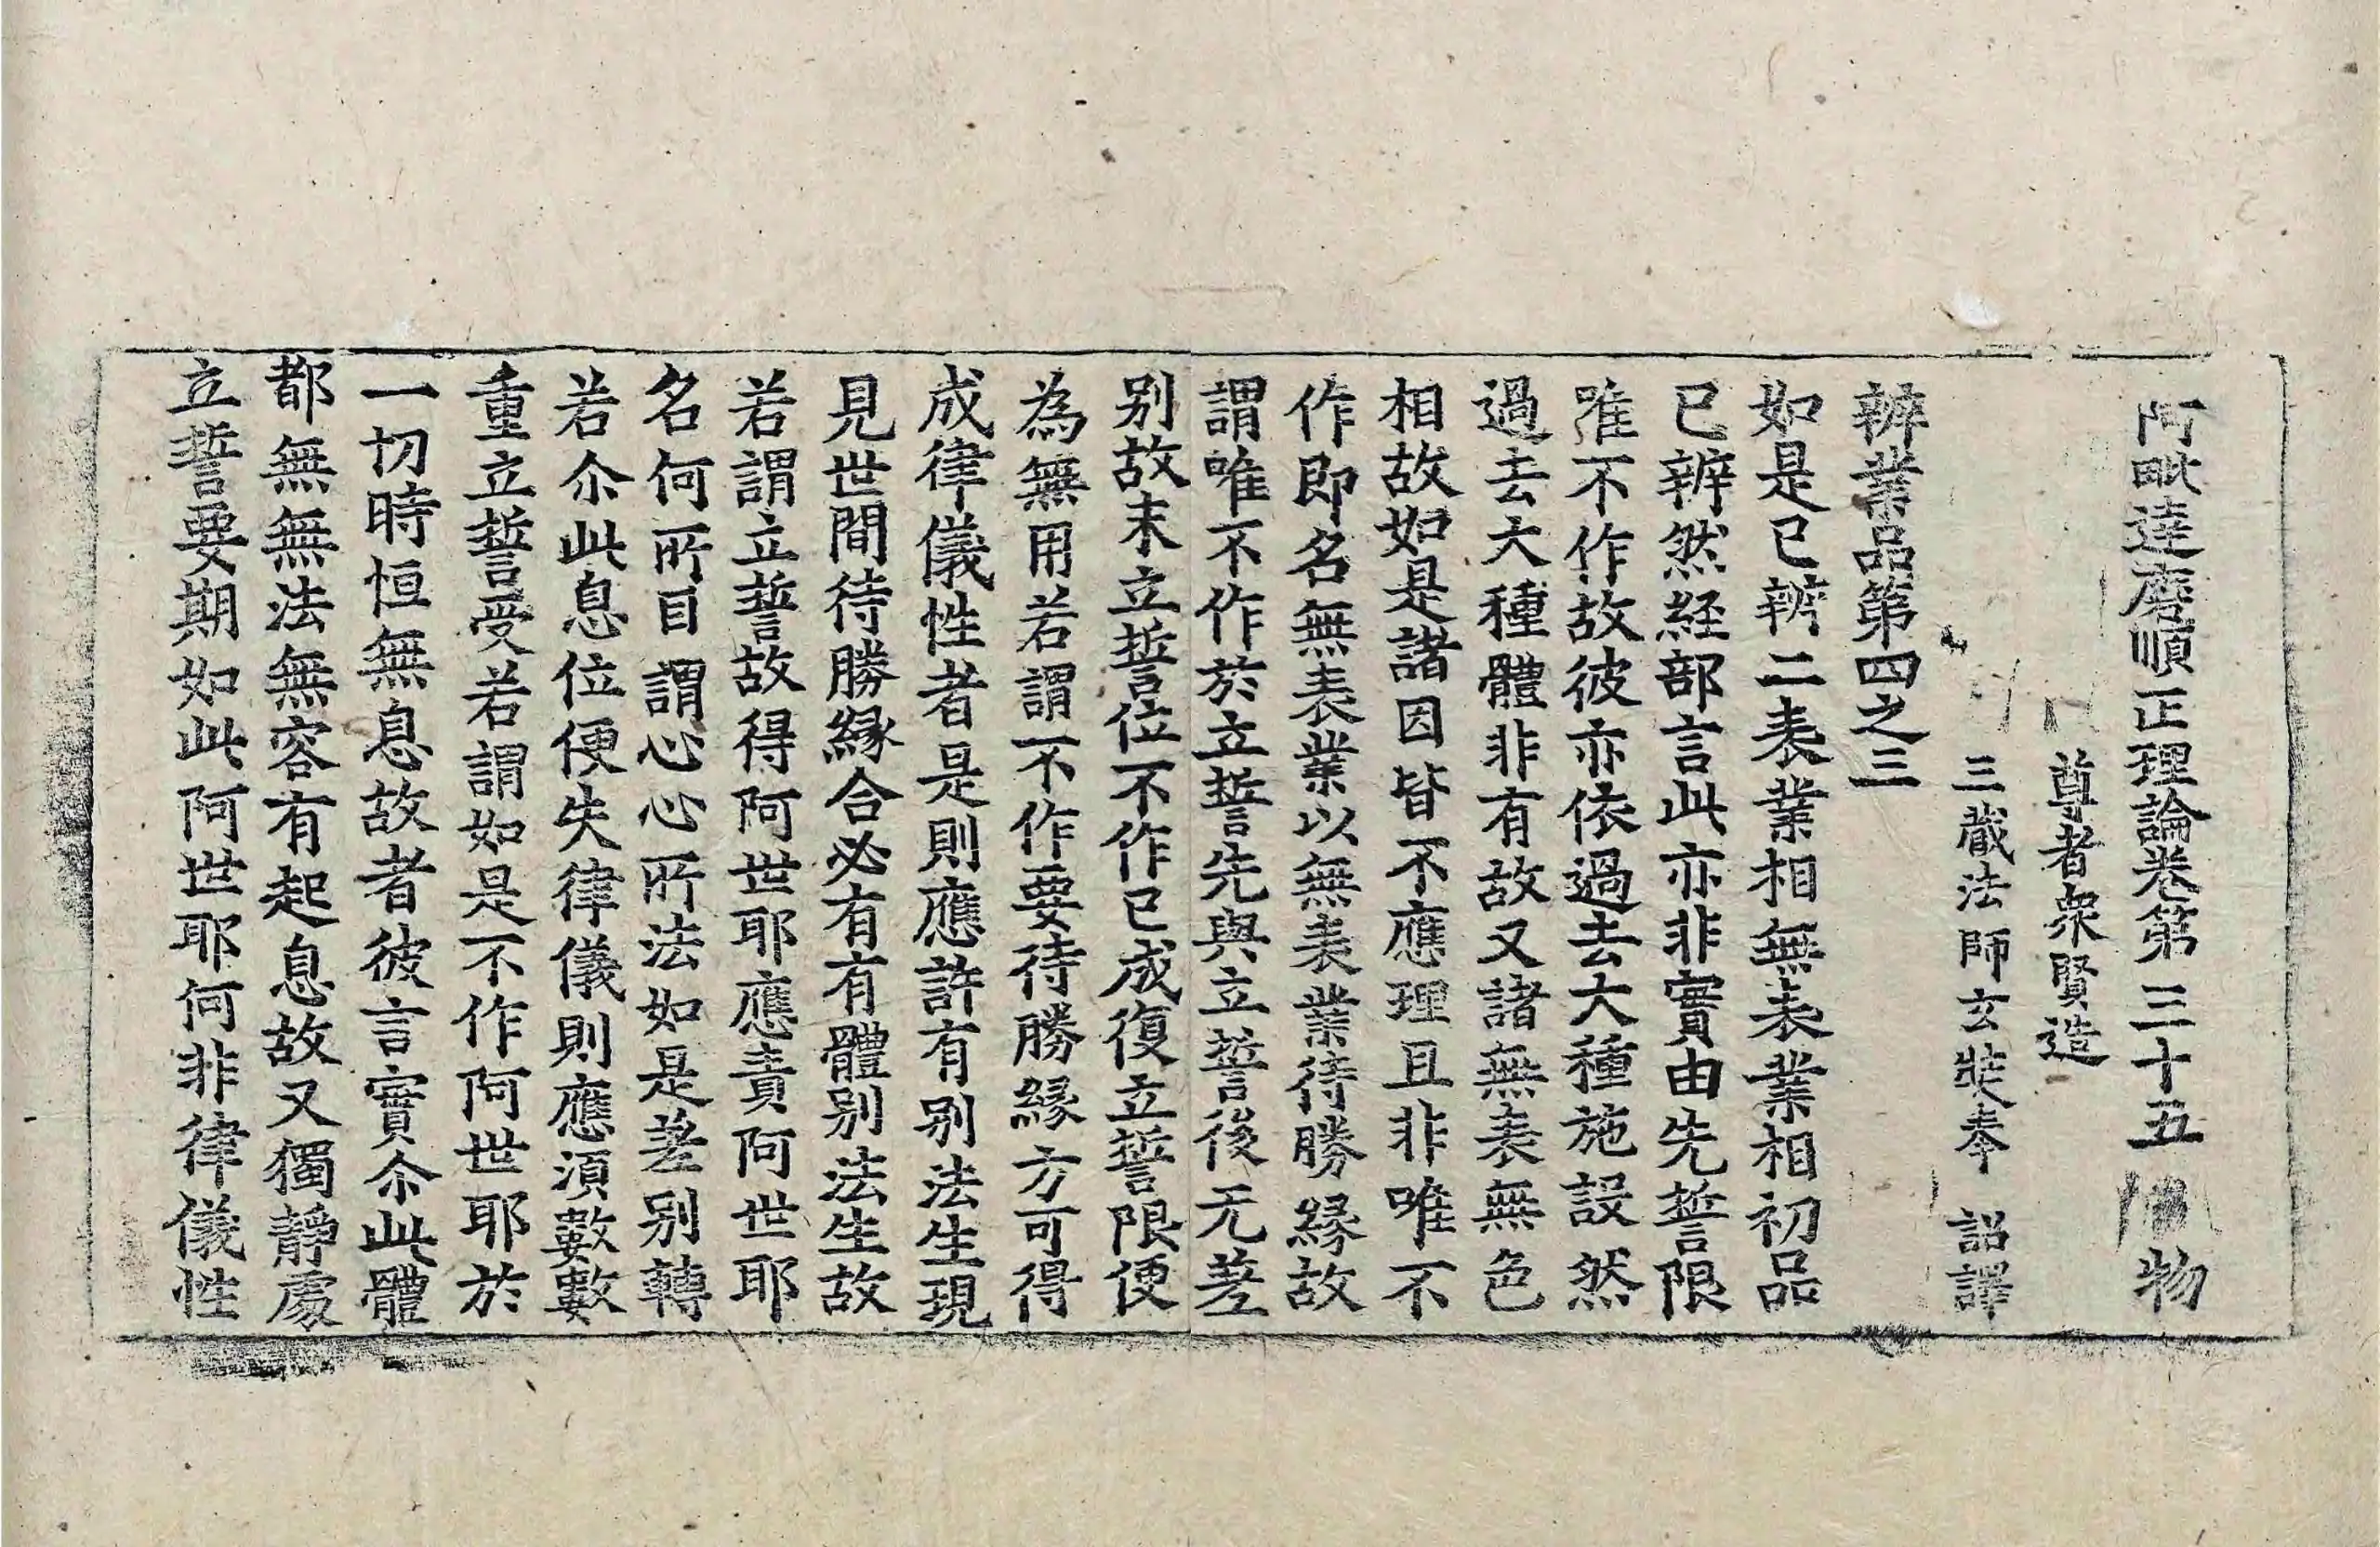 阿毗達磨順正理論卷第三十五 物
尊者衆賢造
三藏法師玄奘奉 詔譯
辨業品第四之三
如是已辨二表業相無表業相初品
已辨然経部言此亦非實由先誓限
唯不作故彼亦依過去大種施設然
過去大種體非有故又諸無表無色
相故如是諸因皆不應理且非唯不
作即名無表業以無表業待勝緣故
謂唯不作於立誓先與立誓後无差
別故末立誓位不作已成復立誓限便
為無用若謂不作要待勝緣方可得
成律儀性者是則應許有別法生現
見世間待勝緣合必有有體別法生故
若謂立誓故得阿世耶應責阿世耶
名何所目謂心心所法如是差別轉
若尒此息位便失律儀則應湏數數
重立誓受若謂如是不作阿世耶於
一切時恒無息故者彼言實尒此體
都無無法無容有起息故又獨靜處
立誓要期如此阿世耶何非律儀性